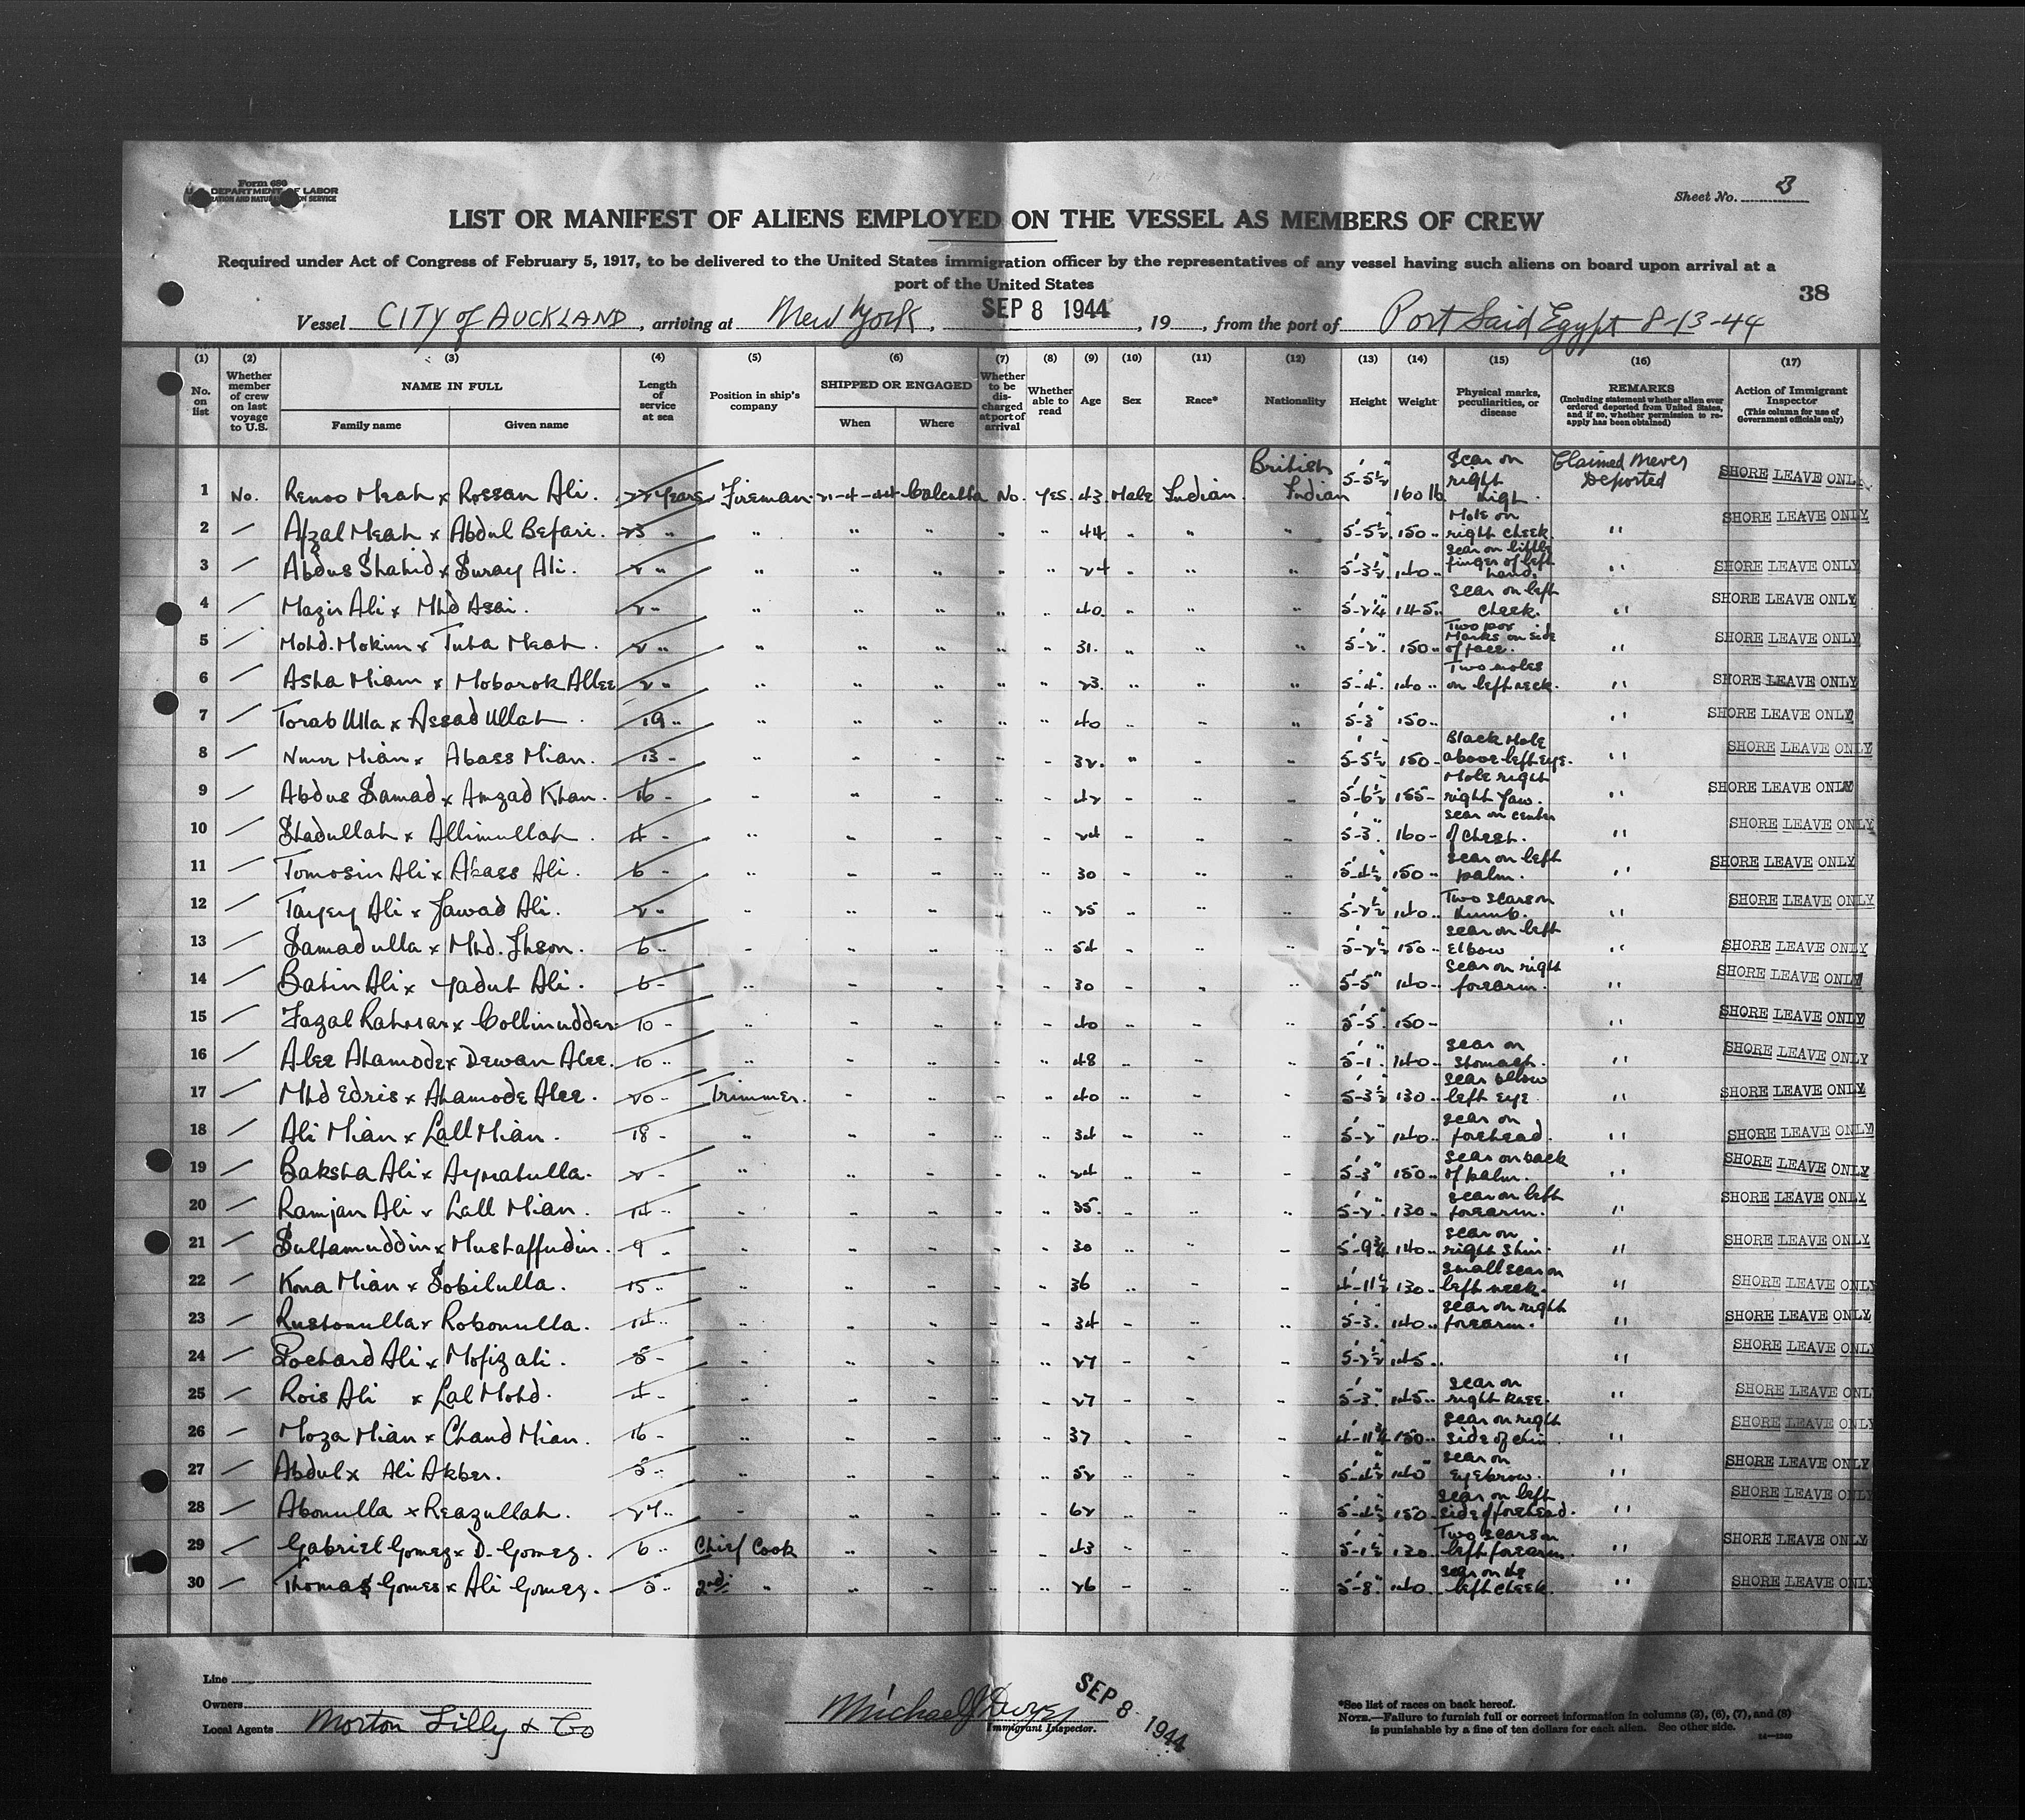 Form 680
U. S. DEPARTMENT OF LABOR
Sheet No. 3
LIST OR MANIFEST OF ALIENS EMPLOYED ON THE VESSEL AS MEMBERS OF CREW
Required under Act of Congress of February 5, 1917, to be delivered to the United States immigration officer by the representatives of any vessel having such aliens on board upon arrival at a
port of the United States
38
Vessel CITY of AUCKLAND, arriving at New York, SEP 8 1944, 19 , from the port of Port Said Egypt 8-13-44
(1) (2) (3) (4) (5) (6) (7) (8) (9) (10) (11) (12) (13) (14) (15) (16) (17)
No. on list
Whether member of crew on last voyage to U.S.
NAME IN FULL
Family name
Given name
Length of service at sea
Position in ship's company
SHIPPED OR ENGAGED
When
Where
Whether to be discharged at port of arrival
Whether able to read
Age
Sex
Race*
Nationality
Height
Weight
Physical marks, peculiarities, or disease
REMARKS
(Including statement whether alien ever ordered deported from United States, and if so, whether permission to reapply has been obtained)
Action of Immigrant Inspector
(This column for use of Government officials only)
1 No. Renoo Meah x Rossan Ali. 22 Years Fireman 21-4-44 Calcutta No. Yes. 43 Male Indian. British Indian 5'-5½" 160 lb Scar on right thigh. Claimed Never Deported SHORE LEAVE ONLY
2 Afzal Meah x Abdul Befari. 23 " " " " " " 44 " " " 5'-5½" 150 " Mole on right cheek. " SHORE LEAVE ONLY
3 Abdus Shahid x Suray Ali. 2 " " " " " " 24 " " " 5'-3½" 140 " Scar on little finger of left hand. " SHORE LEAVE ONLY
4 Mazir Ali x Mhd Asai. 2 " " " " " " 40 " " " 5'-2¼" 145 " Scar on left cheek. " SHORE LEAVE ONLY
5 Mohd. Mokim x Tuha Meah. 2 " " " " " " 31. " " " 5'-2" 150 " Two pox Marks on side of face. " SHORE LEAVE ONLY
6 Asha Miam x Moborok Allee 2 " " " " " " 23 " " " 5'-4" 140 " Two moles on left neck. " SHORE LEAVE ONLY
7 Torab Ulla x Assad Ullah. 19 " " " " " " 40 " " " 5'-3" 150 " " SHORE LEAVE ONLY
8 Nur Mian x Abass Mian. 13 " " " " " " 32. " " " 5'-5½" 150 " Black Mole above left eye. " SHORE LEAVE ONLY
9 Abdus Samad x Amzad Khan. 16 " " " " " " 42 " " " 5'-6½" 155 " Mole right right Jaw. " SHORE LEAVE ONLY
10 Shadullah x Allimullah. 4 " " " " " " 24 " " " 5'-3" 160 " Scar on center of chest. " SHORE LEAVE ONLY
11 Tomosin Ali x Abass Ali. 6 " " " " " " 30 " " " 5'-4½" 150 " Scar on left palm. " SHORE LEAVE ONLY
12 Ali x Jawad Ali. 2 " " " " " " 25 " " " 5'-2½" 140 " Two scars on thumb. " SHORE LEAVE ONLY
13 Samadulla x Mhd. 6 " " " " " " 54 " " " 5'-2½" 150 " Scar on left Elbow " SHORE LEAVE ONLY
14 Batin Ali x Yadut Ali. 6 " " " " " " 30 " " " 5'-5" 140 " Scar on right forearm. " SHORE LEAVE ONLY
15 Fazal Rahman x Collinudder 10 " " " " " " 40 " " " 5'-5" 150 " " SHORE LEAVE ONLY
16 Alee Ahamode x Dewan Alee. 10 " " " " " " 48 " " " 5'-1" 140 " Scar on Stomach. " SHORE LEAVE ONLY
17 Mhd Edris x Ahamode Alee. 20 " Trimmer. " " " " 40 " " " 5'-3½" 130 " Scar below left eye " SHORE LEAVE ONLY
18 Ali Mian x Lall Mian. 18 " " " " " " 34 " " " 5'-2" 140 " Scar on forehead. " SHORE LEAVE ONLY
19 Baksha Ali x Aymatulla. 2 " " " " " " 24 " " " 5'-3" 150 " Scar on back of palm. " SHORE LEAVE ONLY
20 Ramjan Ali x Lall Mian. 14 " " " " " " 35. " " " 5'-2" 130 " Scar on left forearm. " SHORE LEAVE ONLY
21 Sultamuddin x Mustaffudin. 9 " " " " " " 30 " " " 5'-9¾" 140 " Scar on right shin. " SHORE LEAVE ONLY
22 Kona Mian x Sobilulla. 15 " " " " " " 36 " " " 4'-11½" 130 " Small scar on left neck. " SHORE LEAVE ONLY
23 Rustomulla x Robonulla. 14 " " " " " " 34 " " " 5'-3" 140 " Scar on right forearm. " SHORE LEAVE ONLY
24 Sochard Ali x Mofiz ali. 5 " " " " " " 27 " " " 5'-2½" 145 " " SHORE LEAVE ONLY
25 Rois Ali x Lal Mohd. 4 " " " " " " 27 " " " 5'-3" 145 " Scar on right knee. " SHORE LEAVE ONLY
26 Moza Mian x Chand Mian. 16 " " " " " " 37 " " " 4'-11¾" 150 " Scar on right side of chin " SHORE LEAVE ONLY
27 Abdul x Ali Akber. 5 " " " " " " 52 " " " 5'-4½" 140 " Scar on eyebrow. " SHORE LEAVE ONLY
28 Abonulla x Reazullah. 27 " " " " " " 62 " " " 5'-4½" 150 " Scar on left side of forehead. " SHORE LEAVE ONLY
29 Gabriel Gomez x D. Gomez. 6 " Chief Cook " " " " 43 " " " 5'-1½" 120 " Two scars on left forearm. " SHORE LEAVE ONLY
30 Thomas Gomes x Ali Gomez. 5 " 2nd. " " " " " 26 " " " 5'-8" 140 " Scar on the left cheek. " SHORE LEAVE ONLY
Line
Owners
Local Agents Morton Lilly & Co
Michael J Dwyer
Immigrant Inspector.
SEP 8 1944
*See list of races on back hereof.
NOTE.—Failure to furnish full or correct information in columns (3), (6), (7), and (8)
is punishable by a fine of ten dollars for each alien. See other side.